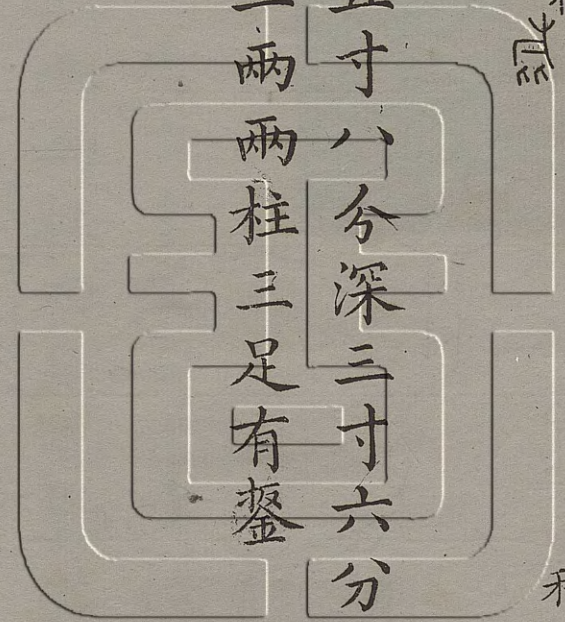 寸八分深三寸六分
兩兩柱三足有鋬